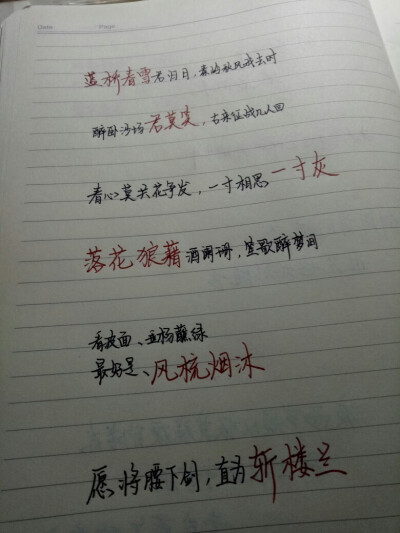 Date Page
蓝桥春雪君归日，秦岭秋风我去时
醉卧沙场君莫笑，古来征战几人回
春心莫共花争发，一寸相思一寸灰
落花狼藉酒阑珊，笙歌醉梦间
看波面、垂杨蘸绿
最好是、风梳烟沐
愿将腰下剑，直为斩楼兰